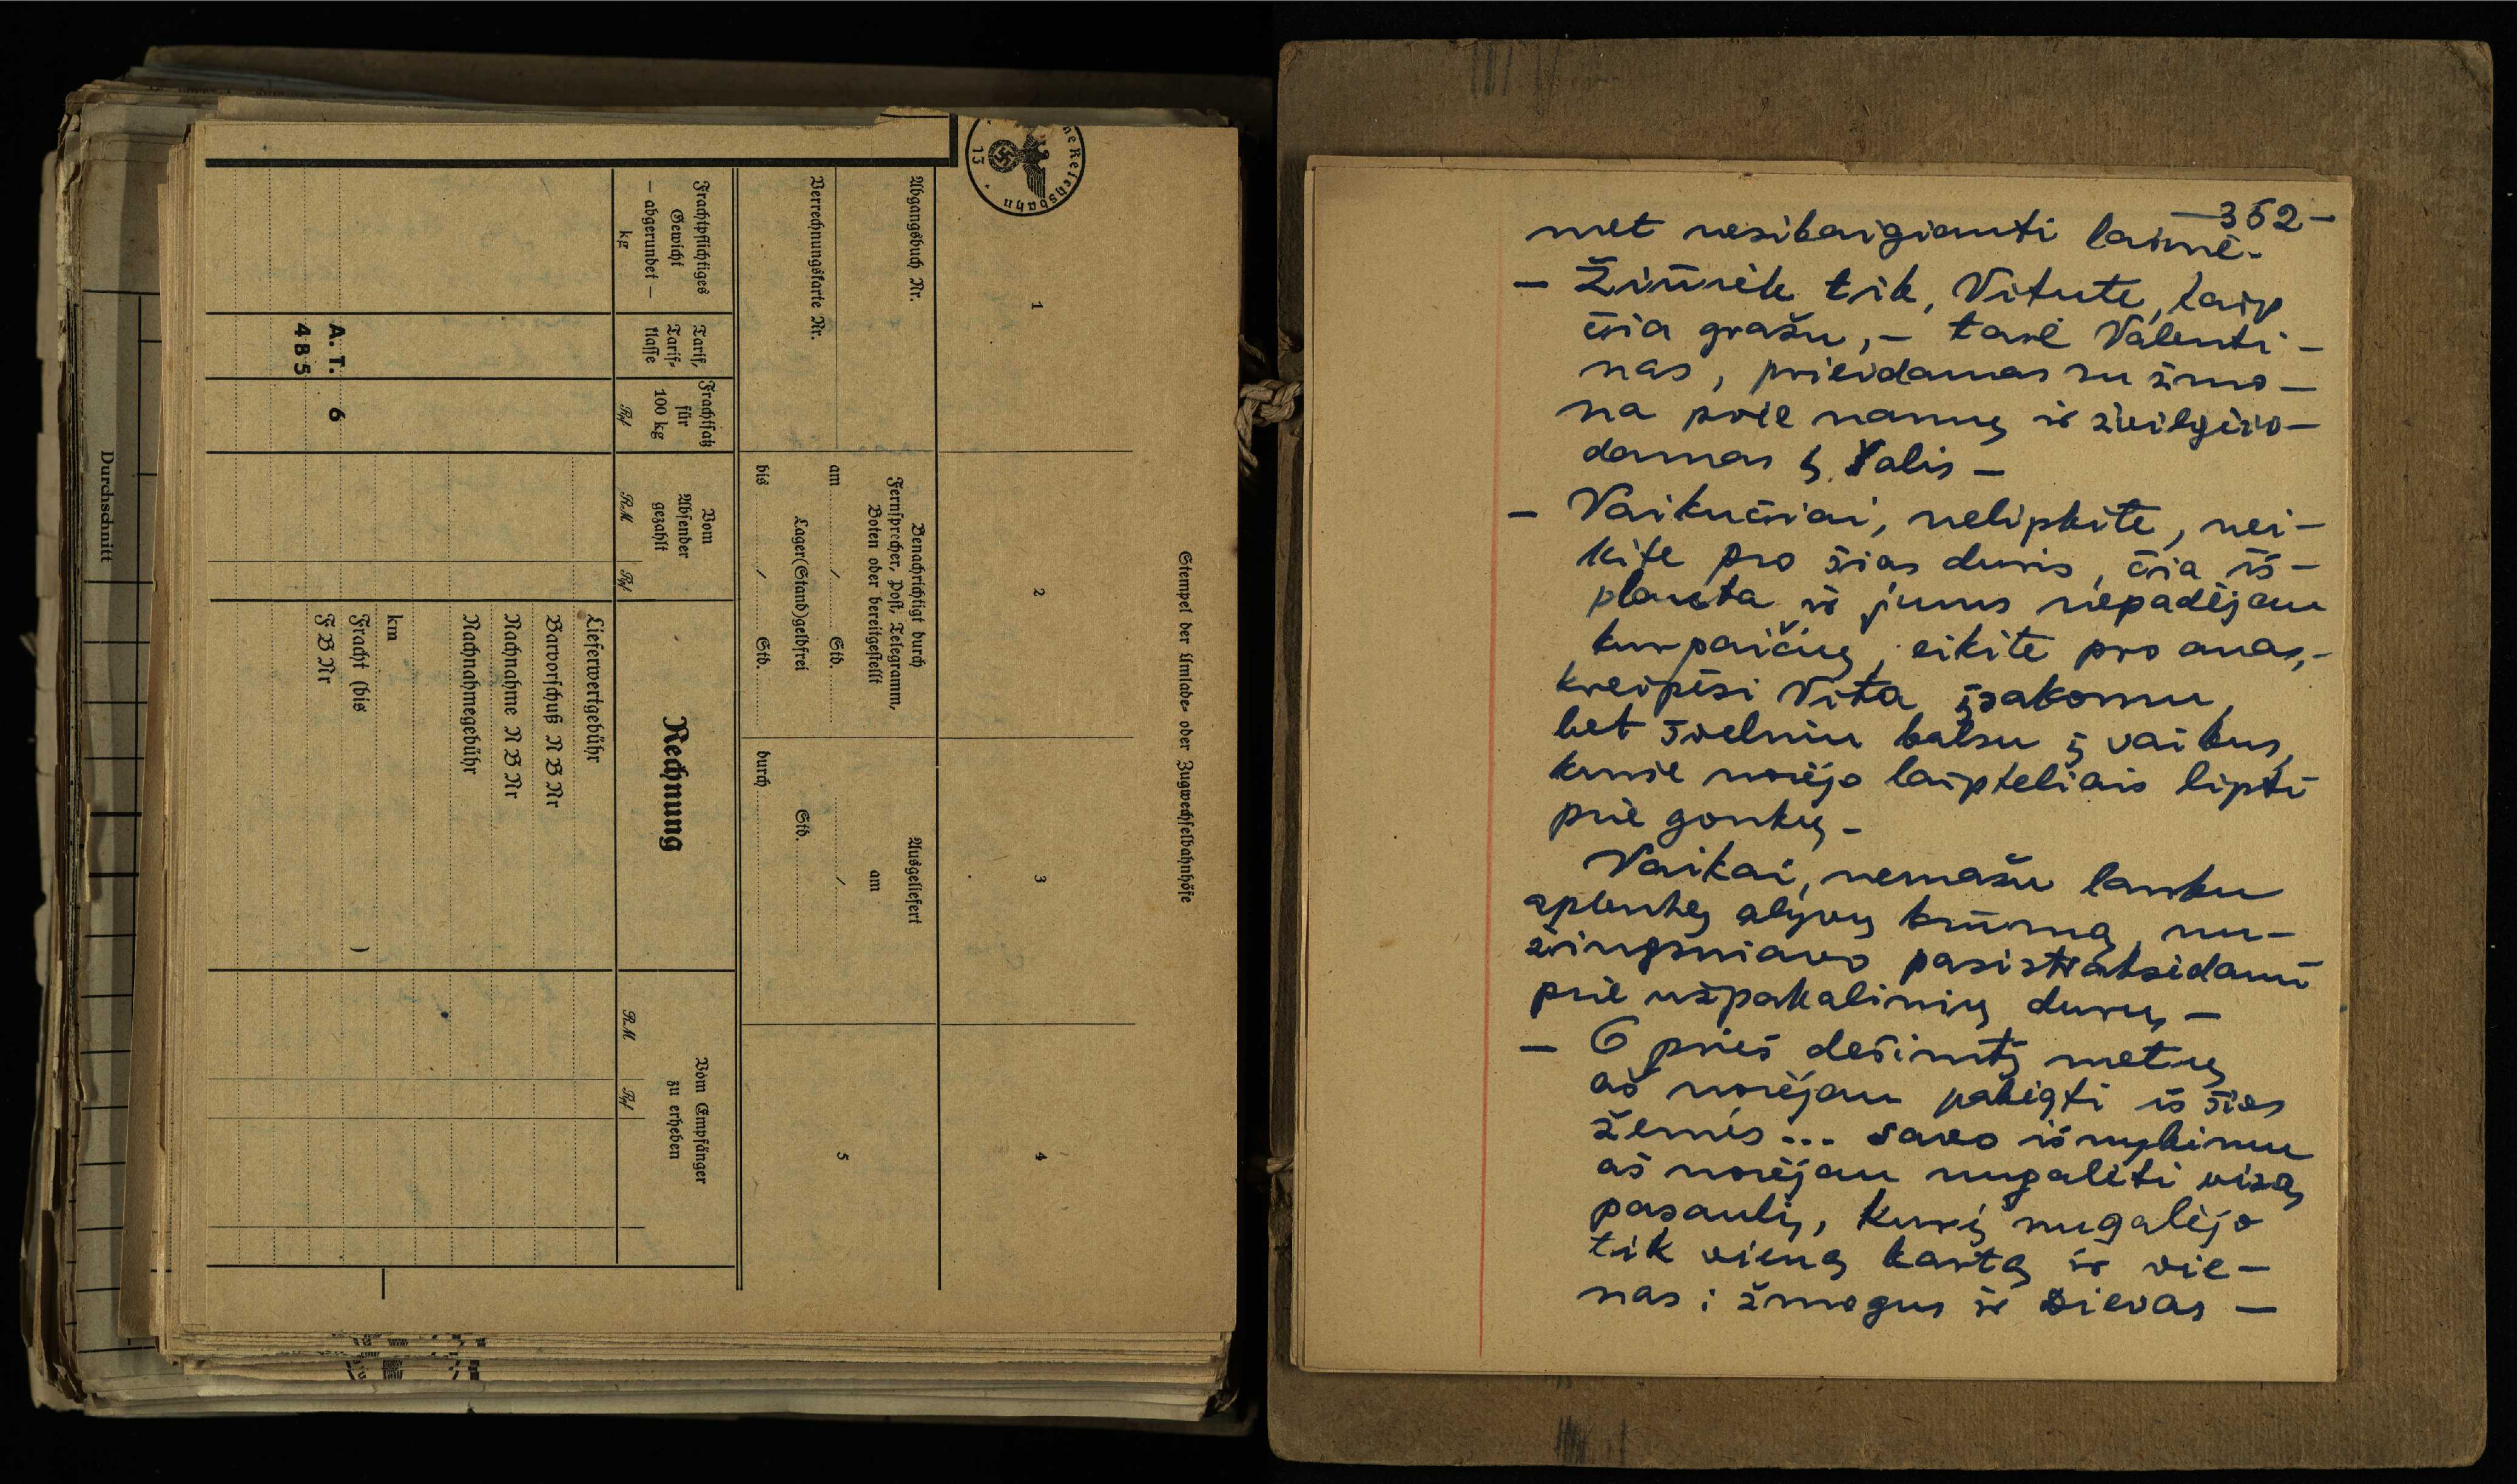 Durchschnitt
ne Reichsbahn
13
Stempel der Umlade- oder Zugwechselbahnhöfe
1
2
3
4
Abgangsbuch Nr.
Verrechnungskarte Nr.
Benachrichtigt durch
Fernsprecher, Post, Telegramm,
Boten oder bereitgestellt
am / Std.
Lager(Stand)geldfrei
bis / Std.
Ausgeliefert
am
/
Std.
durch
5
Frachtpflichtiges
Gewicht
— abgerundet —
kg
Tarif,
Tarif-
klasse
Frachtsatz
für
100 kg
Rpf
Vom
Absender
gezahlt
RM
Rpf
Rechnung
Vom Empfänger
zu erheben
RM
Rpf
Lieferwertgebühr
Barvorschuß N B Nr
Nachnahme N B Nr
Nachnahmegebühr
km
Fracht (bis )
F B Nr
A. T. 6
4 B 5
—352—
met nesibaigianti laimė.
— Žiūrėk tik, Vitute, taip
čia gražu, – tarė Valenti-
nas, prieidamas su žmo-
na prie namų ir žvilgčio-
damas į šalis —
— Vaikučiai, nelipkite, nei-
kite pro šias duris, čia iš-
plauta ir jums nepadėjau
kurpaičių, eikite pro anas, –
kreipėsi Vita įsakomu,
bet švelniu balsu į vaikus,
kurie norėjo laipteliais lipti
prie gonkų –
Vaikai, nemažu lanku
aplenkę alyvų krūmą, nu-
žingsniavo pasistraksėdami
prie užpakalinių durų, —
— O prieš dešimtį metų
aš norėjau pabėgti iš šios
žemės... savo išnykimu
aš norėjau nugalėti visą
pasaulį, kurį nugalėjo
tik vieną kartą ir vie-
nas: žmogus ir Dievas —